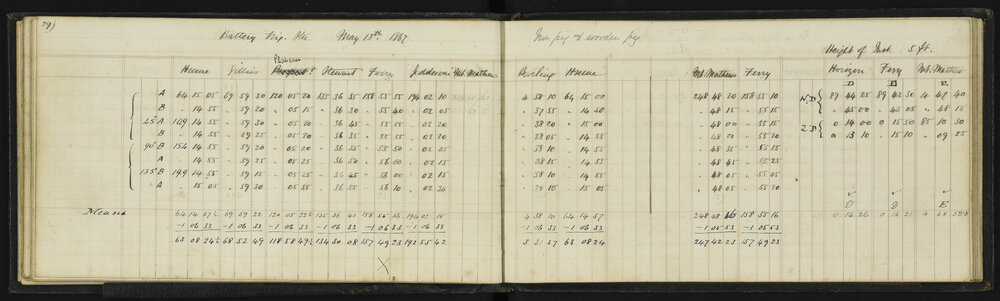 29)
Battery Trig. Stn May 13th 1867 Iron peg & wooden peg
Height of Inst. 5 ft.
Horizon Ferry Mt. Matthew
Hume Pillans Stewart Ferry Mt. Matthew Bowling Hume Mt. Matthew Ferry D D E
A 64 15 05 69 59 30 120 05 20 135 36 35 158 55 55 194 02 10 4 38 10 64 15 00 248 48 20 158 55 10 N.D 89 44 25 89 42 30 4 47 40
B " 14 55 " 59 20 " 05 15 " 36 30 " 55 40 " 02 05 " 37 55 " 14 50 " 48 15 " 55 15 " 45 00 " 45 05 " 48 15
45° A 109 14 55 " 59 30 " 05 20 " 36 45 " 55 55 " 02 15 " 38 20 " 15 00 " 48 00 " 55 15 Z.D 0 14 00 0 15 50 85 10 50
B " 14 55 " 59 25 " 05 20 " 36 35 " 55 55 " 02 20 " 38 05 " 14 55 " 48 00 " 55 20 0 13 10 " 15 10 " 09 55
90° B 154 14 55 " 59 20 " 05 20 " 36 35 " 55 50 " 02 05 " 38 10 " 14 55 " 48 35 " 55 15
A " 14 55 " 59 25 " 05 25 " 36 50 " 56 00 " 02 15 " 38 15 " 14 55 " 48 45 " 55 25
135° B 199 14 55 " 59 15 " 05 25 " 36 45 " 56 00 " 02 15 " 38 10 " 14 55 " 48 05 " 55 15
A " 15 05 " 59 30 " 05 35 " 36 55 " 56 10 " 02 30 " 38 15 " 15 05 " 48 05 " 55 20
D D E
Means 64 14 57½ 69 59 22 120 05 22½ 135 36 41 158 55 56 194 02 15 4 38 10 64 14 57 248 48 16 158 55 16 0 14 26 0 16 21 4 48 52.5
-1 06 33 -1 06 33 -1 06 33 -1 06 33 -1 06 33 -1 06 33 -1 06 33 -1 06 33 -1 05 53 -1 05 53
63 08 24½ 68 52 49 118 58 49½ 134 30 08 157 49 23 192 55 42 3 31 37 63 08 24 247 42 23 157 49 23
X